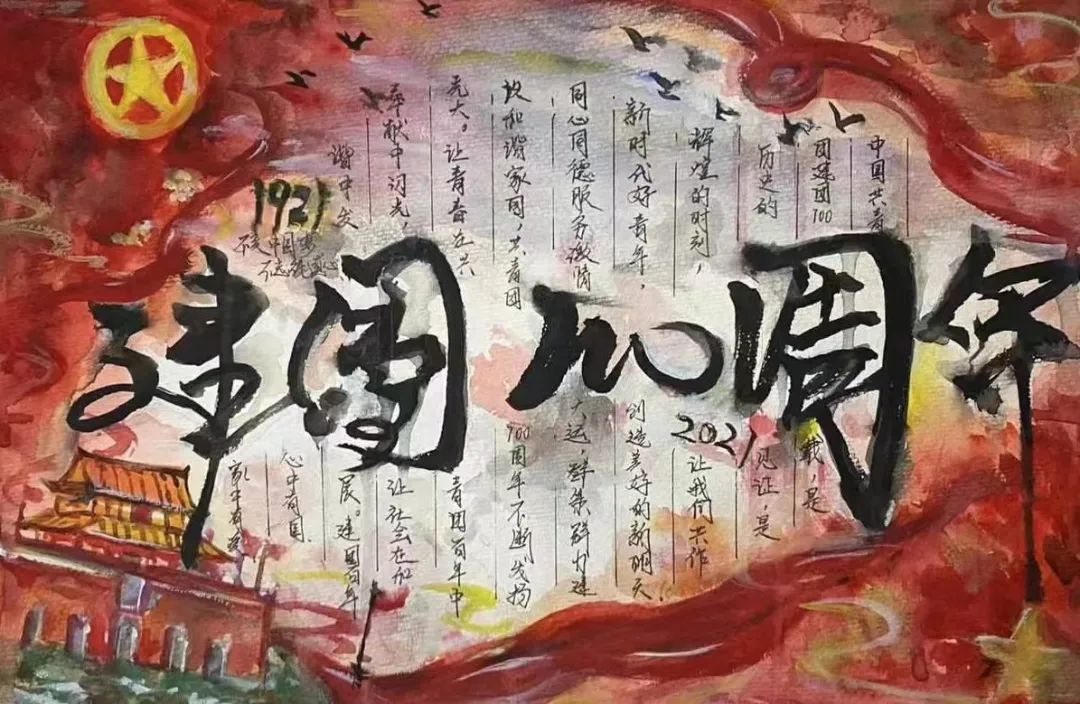 建團100周年
中国共青
团建团100
载，是
历史的
见证，是
辉煌的时刻，
让我们共作
新时代好青年，
创造美好的新明天
同心同德服务激情
大运，群策群力建
设和谐家园，共青团
100周年不断发扬
光大。让青春在共
青团百年中
奉献中闪光，
让社会在和
谐中发
展。建团百年
心中有国
家中有
1921
2021